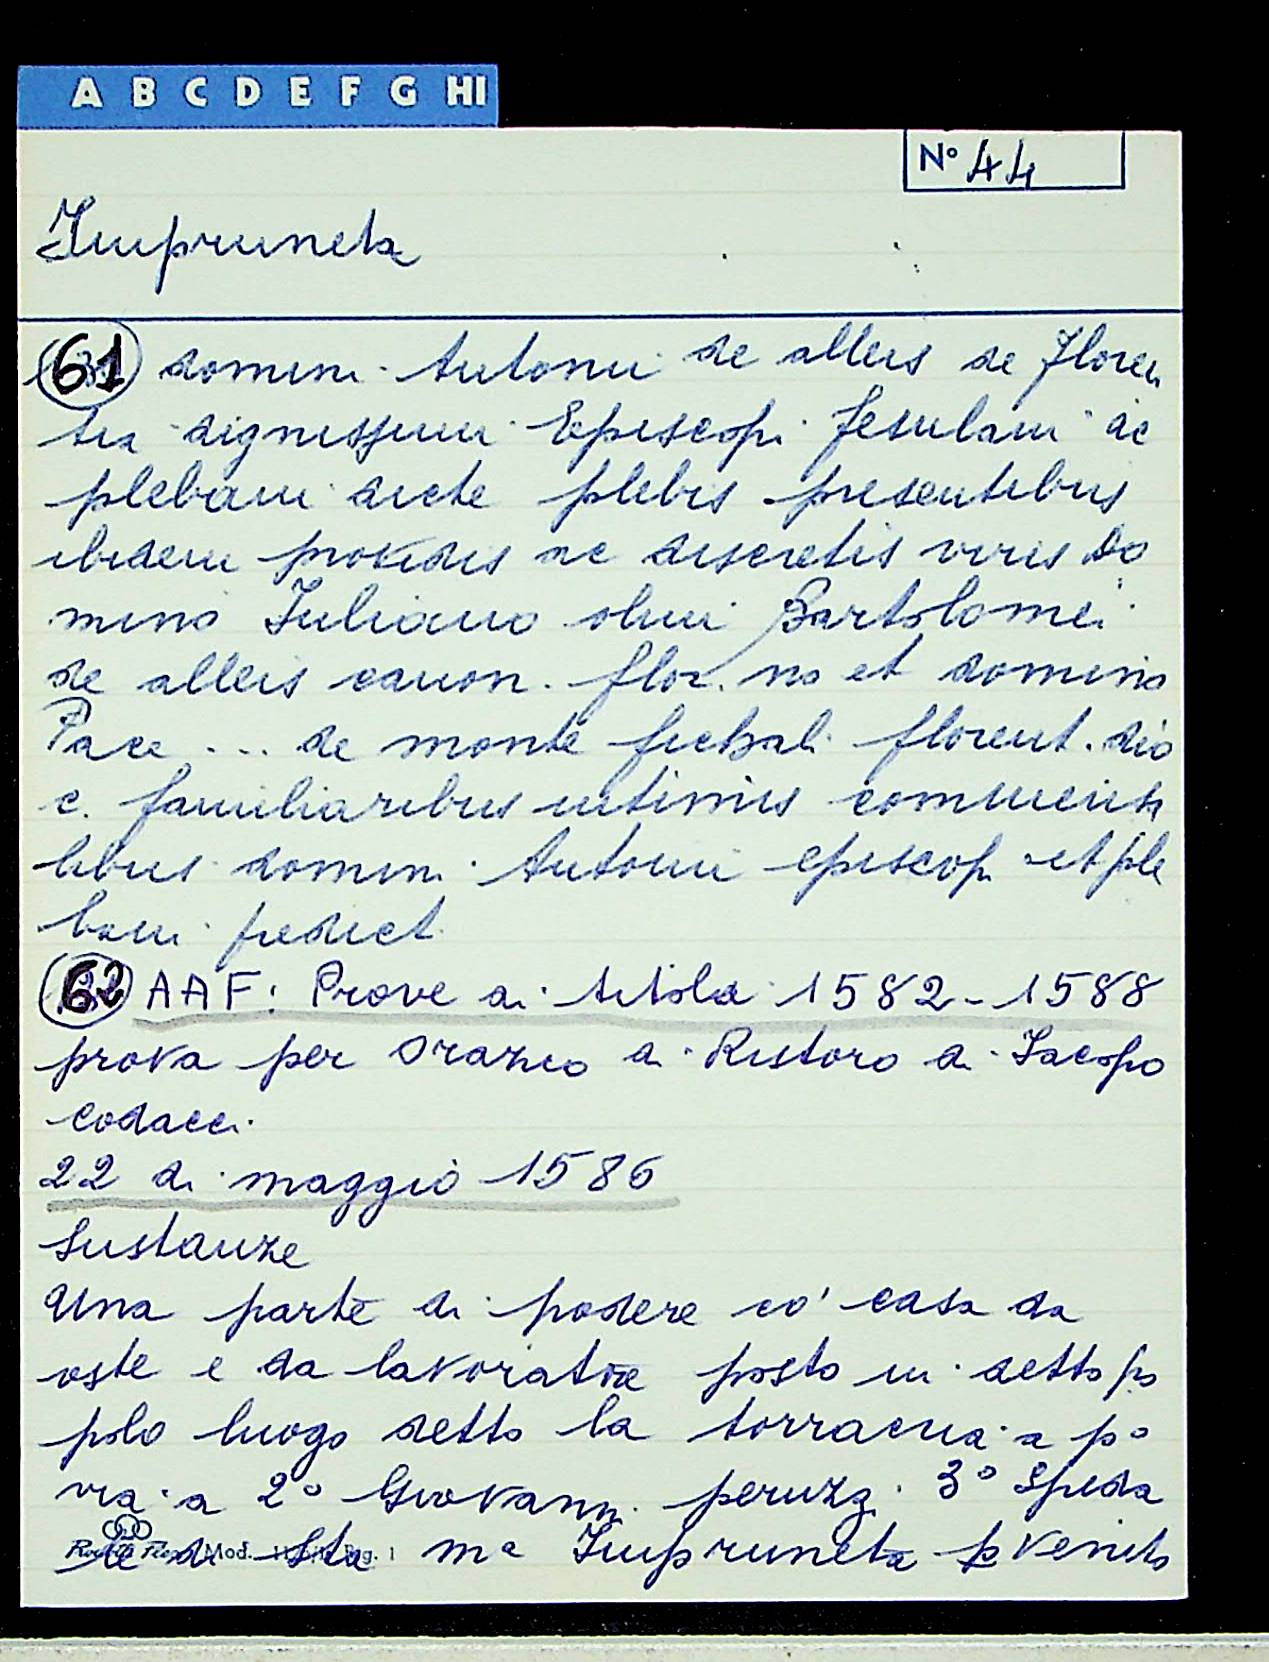 A B C D E F G HI
N° 44
Impruneta
61 domini Antonii de alleis de Floren
tia dignissimi Episcopi fesulani ac
plebani dicte plebis presentibus
ibidem providis ac discretis viris Do
mino Iuliano olim Bartolomei
de alleis canon. flor. no et domino
Pace ... de monte fichali florent. dio
c. familiaribus intimis commensa
libus domini Antonii episcopi et ple
bani predict.
62 AAF: Prove di titola 1582-1588
prova per Orazio di Ristoro di Iacopo
codacci.
22 di maggio 1586
Sustanze
Una parte di podere co' casa da
oste e da lavoratore posto in detto po
polo luogo detto la torraccia a p°
via a 2° Giovanni peruzzi 3° Speda
le di Sta Ma Impruneta p venuto
Mod. Pag. 1